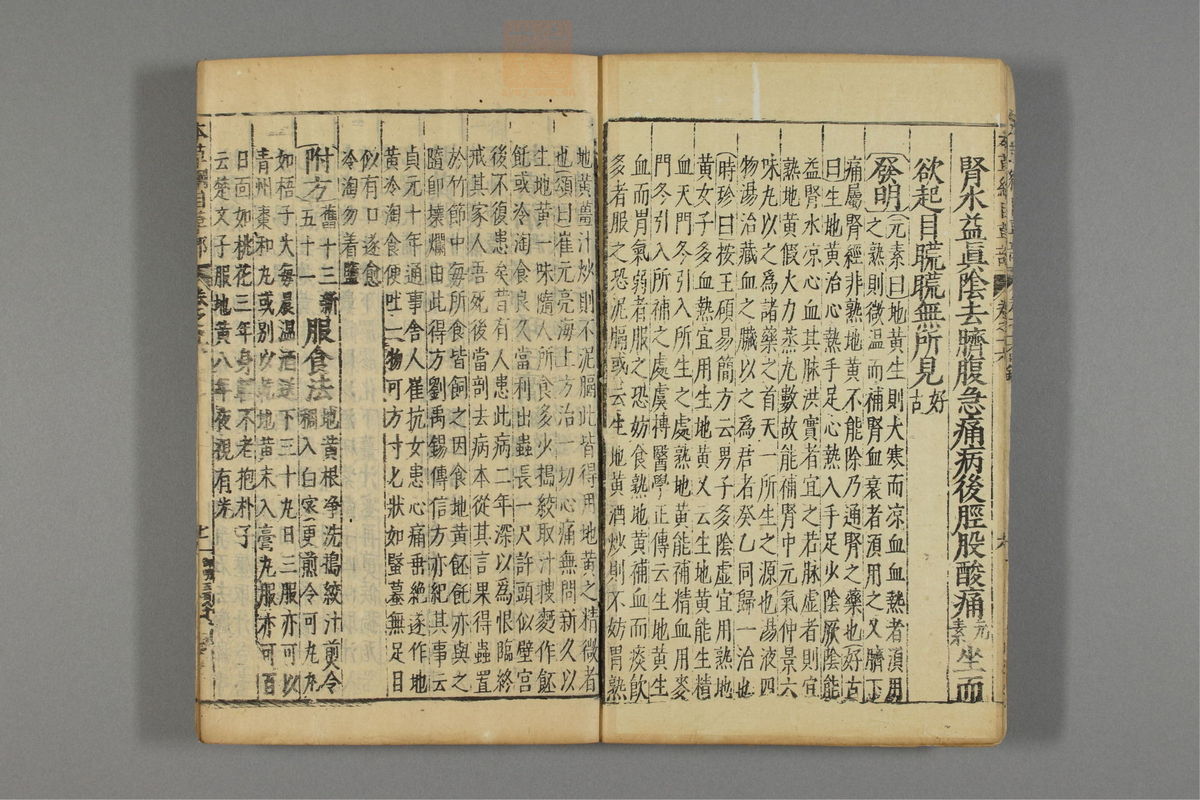 腎水益眞陰去臍腹急痛病後脛股酸痛元素坐而
欲起目䀮䀮無所見好古
發明元素曰地黃生則大寒而凉血血熱者須用
之熟則微温而補腎血衰者須用之又臍下
痛屬腎經非熟地黃不能除乃通腎之藥也好古
曰生地黃治心熱手足心熱入手足少陰厥陰能
益腎水凉心血其脉洪實者宜之若脉虛者則宜
熟地黃假火力蒸九數故能補腎中元氣仲景六
味丸以之爲諸藥之首天一所生之源也湯液四
物湯治藏血之臟以之爲君者癸乙同歸一治也
時珍曰按王碩易簡方云男子多陰虛宜用熟地
黃女子多血熱宜用生地黃又云生地黃能生精
血天門冬引入所生之處熟地黃能補精血用麥
門冬引入所補之處虞摶醫學正傳云生地黃生
血而胃氣弱者服之恐妨食熟地黃補血而痰飲
多者服之恐泥膈或云生地黃酒炒則不妨胃熟
地黃薑汁炒則不泥膈此皆得用地黃之精微者
也頌曰崔元亮海上方治一切心痛無問新久以
生地黃一味隨人所食多少搗絞取汁搜麪作餺
飥或冷淘食良久當利出蟲長一尺許頭似壁宫
後不復患矣昔有人患此病二年深以爲恨臨終
戒其家人吾死後當剖去病本從其言果得蟲置
於竹節中每所食皆飼之因食地黃餺飥亦與之
隨卽壞爛由此得方劉禹錫傳信方亦紀其事云
貞元十年通事舍人崔抗女患心痛垂絶遂作地
黃冷淘食便吐一物可方寸匕狀如蝦蟇無足目
似有口遂愈
冷淘勿着鹽
附方舊十三新五十一服食法地黃根净洗搗絞汁煎令
稠入白蜜更煎令可丸丸
如梧子大每晨温酒送下三十丸日三服亦可以
青州棗和丸或别以乾地黃末入膏丸服亦可百
日面如桃花三年身輕不老抱朴子
云楚文子服地黃八年夜視有光